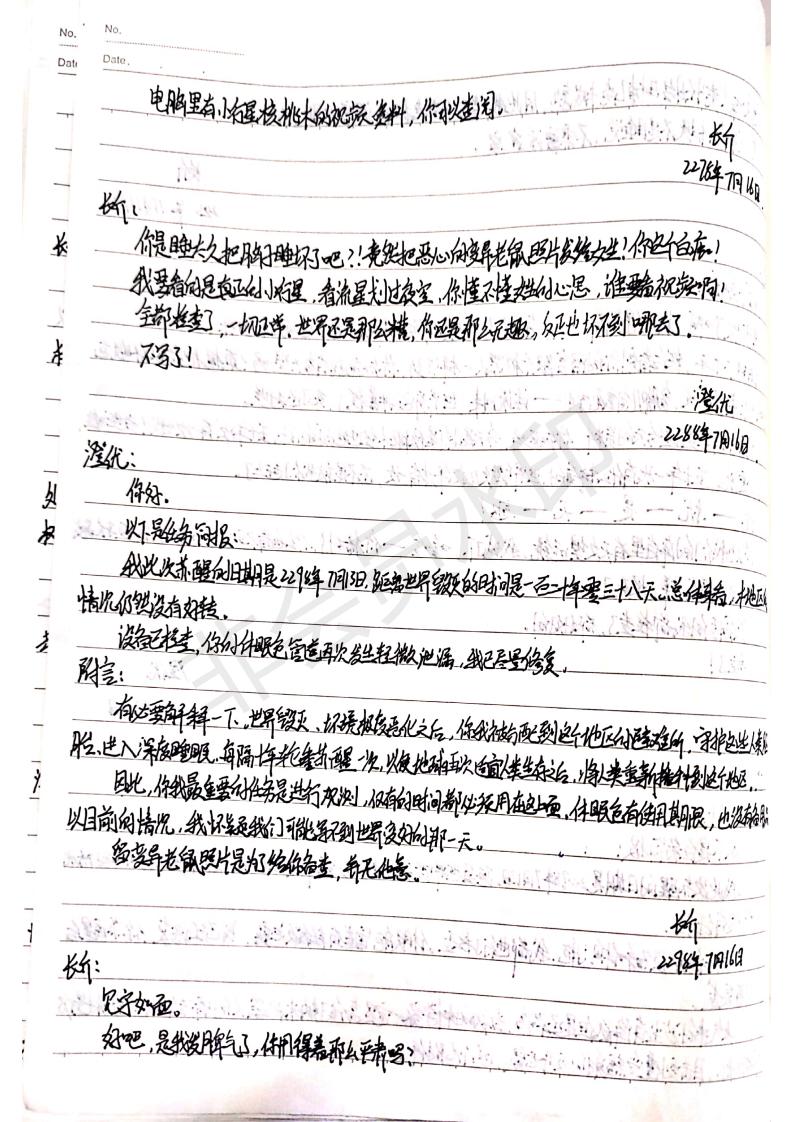 No.
No.
Date
Date.
电脑里有小行星核桃木的视频资料，你可以查阅。
长价
2278年7月16日
长价：
你是睡太久把脑子睡坏了吧？！竟然把恶心的变异老鼠照片发给女生！你这个白痴！
我要看的是真正的小行星，看流星划过夜空，你懂不懂女生的心思，谁要看视频啊！
全部检查了，一切正常。世界还是那么糟，你还是那么无趣。反正也坏不到哪去了。
不写了！
澄优
2288年7月16日
澄优：
你好。
以下是任务简报
我此次苏醒的日期是2298年7月13日，距离世界毁灭的时间是一百二十年零三十八天。总体来看，本地区的
情况仍然没有好转。
设备已检查，你的休眠仓管道再次发生轻微泄漏，我已尽量修复。
附言：
有必要解释一下，世界毁灭、环境极度恶化之后，你我被分配到这个地区的避难所，守护这些人类胚
胎，进入深度睡眠，每隔十年轮番苏醒一次，以便地球再次适宜人类生存之后，将人类重新播种到这个地区。
因此，你我最重要的任务是进行观测，仅有的时间都必须用在这上面，休眠仓有使用期限，也没有备用
以目前的情况，我怀疑是我们可能等不到世界变好的那一天。
留变异老鼠照片是为了给你备查，并无他意。
长价
2298年7月16日
长价：
见字如面。
好吧，是我发脾气了，你用得着那么严肃吗？
非会员水印